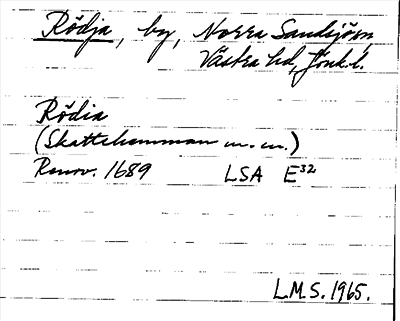 Rödja, by, Norra Sandsjö sn,
Västra hd, Jönk. l.
Rödia
(Skattehemman m.m.)
Renov. 1689 LSA E32
L.M.S. 1965.